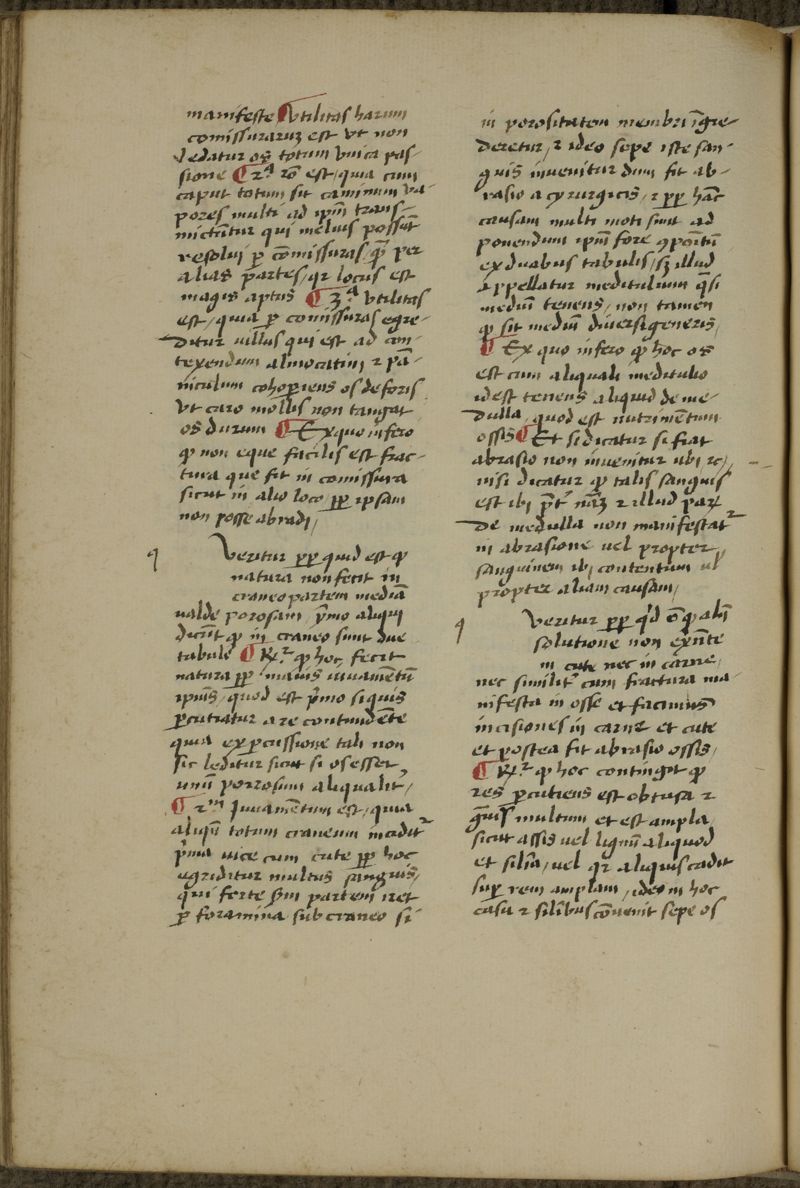 manifeste ¶ Vtilitas harum
comissuraruꝫ est vt non
ledatur os totum vnica pas-
sione ¶ 2ª rō est / quia cum
caput totum sit caminum va-
pores multi ad ipm̄ trans-
mictūtur qui melius possūt
resolui ꝑ cōmissuras / ꝙ̄ per
alias partes / qr locus est
magis aptus ¶ 3ª vtilitas
est / quia ꝑ comissuras egre-
ditur uillus qui est ad
texendum almocatim ⁊ pā-
niculum cohoperiens os de foris
vt caro mollis non tangat
os durum ¶ Ex quo infero
ꝙ non eque facilis est frac-
tura que fit in comissura
sicut in alio loco ꝓꝑ ipsam
non posse abradi /
q
Veritur ꝓꝑ quid est ꝙ
natura non fecit in
craneo partem mediā
ualde porosam pͥmo aliqui
dicūt ꝙ in craneo sunt due
tabule ¶ Rͬ ꝙ hoc fecit
natura ꝓꝑ maius iuuamētū
ipius / quod est pͥmo si quis
ꝑcutiatur a re contundēte
quia ex ꝑcussione tali non
sic leditur sicut si os esset
unū porrosum aliqualit /
¶ 2m iuuamētum est / quia
aliqn̄ totum craneum
pͥma uice cum cute ꝓꝑ hoc
egreditur multus sanguis /
qui forte partem iret
ꝑ foramina sub craneo si
in porositatem membri īgre-
deretur / ⁊ ideo sepe iste san-
guis inuenitur dum fit ab-
rasio a cyrurgicis / ⁊ ꝓꝑ hāc
causam multi moti sunt ad
ponendum ipm̄ fore ꝯpoitū
ex duabus tabulis / sꝫ illud
appellatur meditulium q̄si
mediū tenens / non tamen
ꝙ sit mediū diuersi generis /
¶ Ex quo infero ꝙ hoc os
est cum aliquali meditulio
id est tenens aliquid de me-
dulla / quod est nutrimētum
ossis ¶ Et si dicatur si fiat
abrasio non inuenitur ubi ⁊c /
nisi dicatur ꝙ talis sanguis
est ibi pͥt nāꝫ ⁊ illud parꝫ
de medulla non manifestatͬ
in abrasione uel propter
sanguinem ibi contentum ul
propter aliam causam /
q
Veritur ꝓꝑ qͥd ē ꝙ aliq̄
solutione non exn̄te
in cute nec in carne /
nec similit cum fractura ma-
nifesta in osse et facimus
incisiones in carne et cute
et postea fit abrasio ossis /
¶ Rͬ ꝙ hoc contingit ꝙ
res ꝑcutiens est obtusa ⁊
gͣuis multum et est ampla
sicut assis uel lignū aliquod
et silia / uel qr aliquis cadit
suꝑ rem amplam / ideo in hoc
casu ⁊ silibus cōuenit sepe os